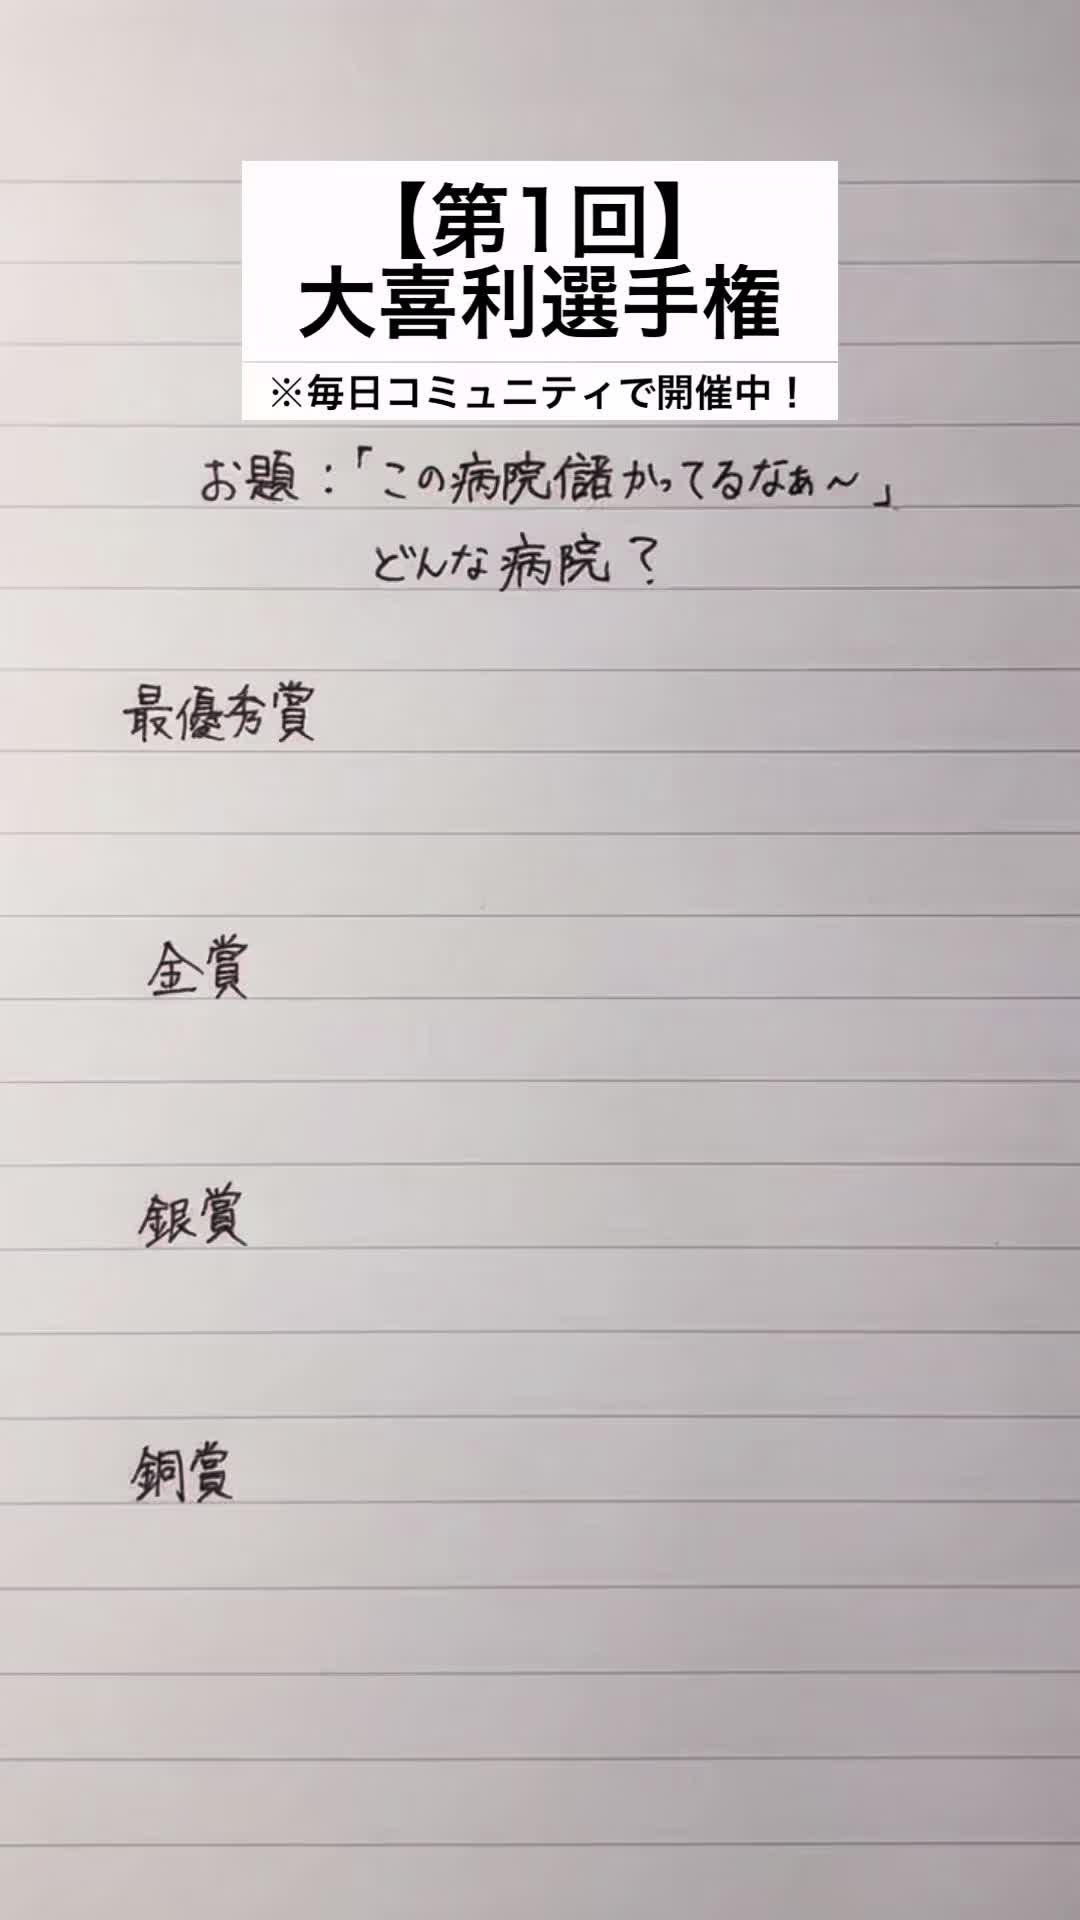 【第1回】
大喜利選手権
※毎日コミュニティで開催中！
お題：「この病院儲かってるなぁ～」
どんな病院？
最優秀賞
金賞
銀賞
銅賞